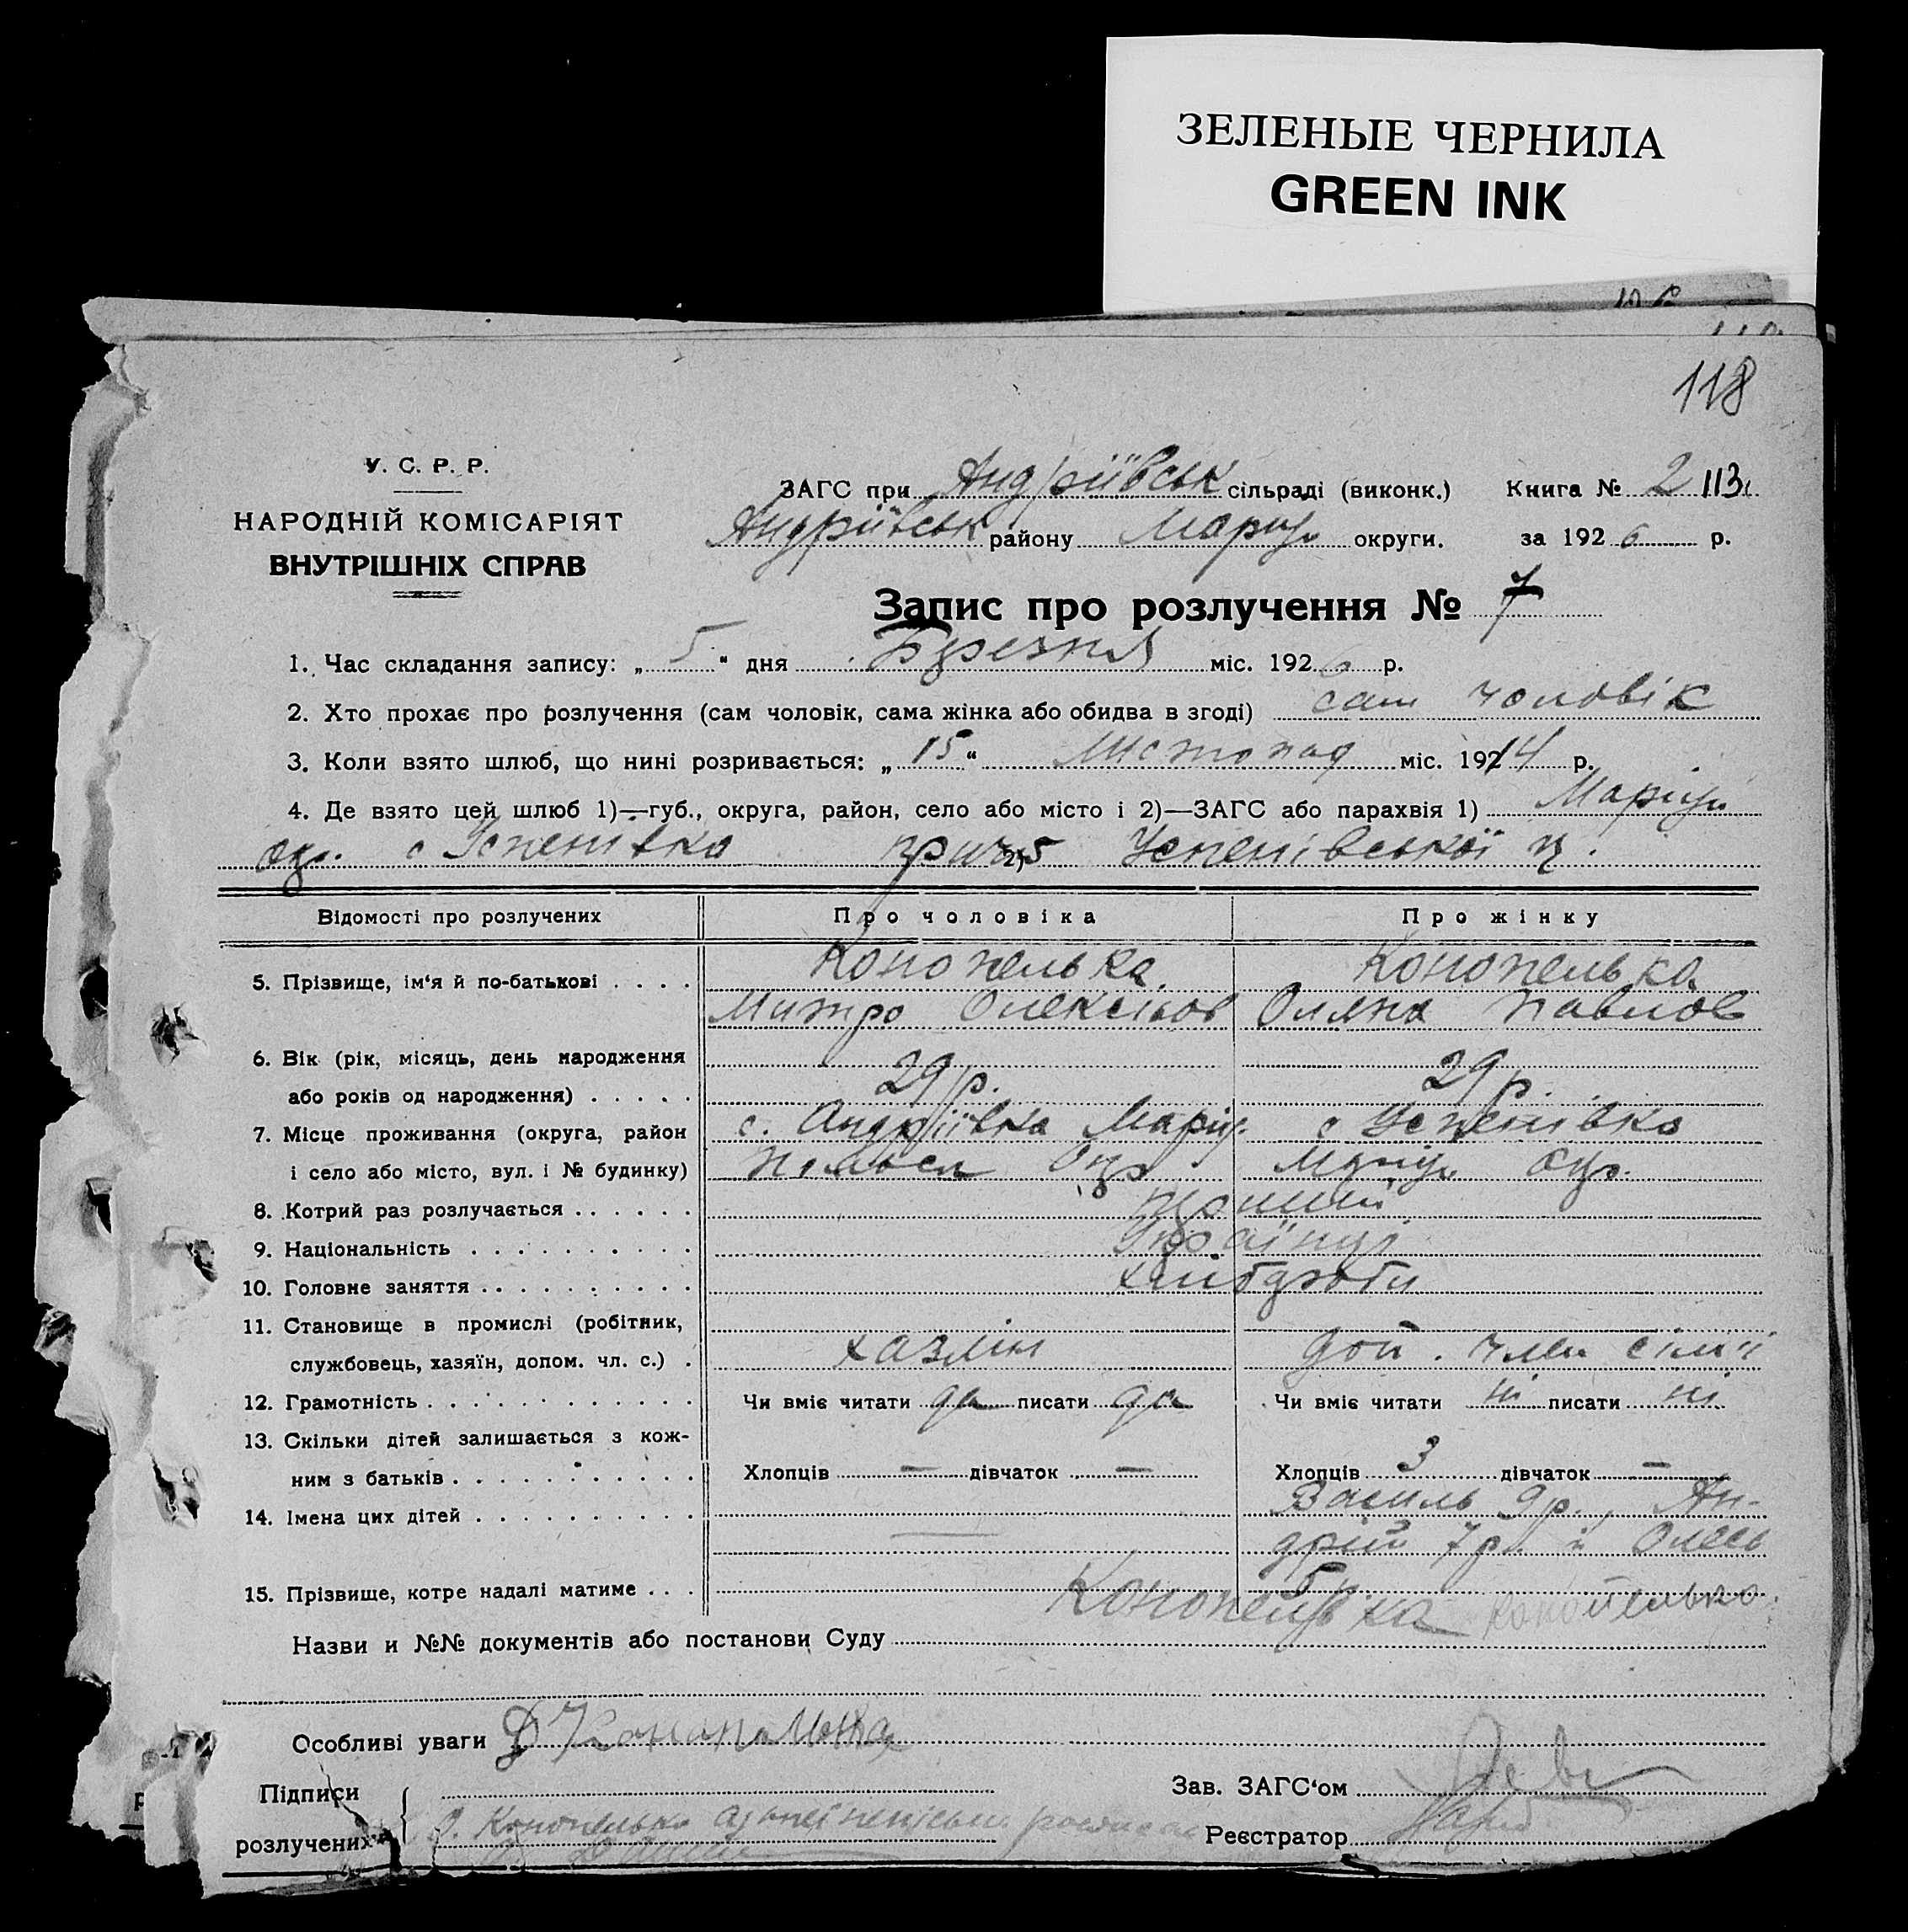 ЗЕЛЕНЫЕ ЧЕРНИЛА
GREEN INK
118
У. С. Р. Р.
НАРОДНІЙ КОМІСАРІЯТ
ВНУТРІШНІХ СПРАВ
ЗАГС при Андріївськ сільраді (виконк.) Книга № 2 113
Андріївськ району Маріуп округи. за 1926 р.
Запис про розлучення № 7
1. Час складання запису: „ 5 “ дня Березня міс. 1926 р.
2. Хто прохає про розлучення (сам чоловік, сама жінка або обидва в згоді) сам чоловік
3. Коли взято шлюб, що нині розривається: „ 15 “ Листопад міс. 1914 р.
4. Де взято цей шлюб 1)—губ., округа, район, село або місто і 2)—ЗАГС або парахвія 1) Маріуп
окр. с Успенівка 2) Успенівської ц.
Відомості про розлучених Про чоловіка Про жінку
5. Прізвище, ім‘я й по-батькові . . . . Конопелька Конопелька
Митро Олексієв Оляна Павлов
6. Вік (рік, місяць, день народження
або років од народження) . . . . . 29 р. 29 р.
7. Місце проживання (округа, район с. Андріївка Маріуп. с Успенівка
і село або місто, вул. і № будинку) Окр Маріуп Окр.
8. Котрий раз розлучається . . . . . . перший
9. Національність . . . . . . . . . . Українці
10. Головне заняття . . . . . . . . . . хлібороби
11. Становище в промислі (робітник,
службовець, хазяїн, допом. чл. с.) . хазяїн доп. член сім'ї
12. Грамотність . . . . . . . . . . . . Чи вміє читати да писати да Чи вміє читати ні писати ні
13. Скільки дітей залишається з кож-
ним з батьків . . . . . . . . . . . Хлопців — дівчаток — Хлопців 3 дівчаток —
14. Імена цих дітей . . . . . . . . . . Василь 9 р., Ан-
— дрій 7 р. й Олесь
15. Прізвище, котре надалі матиме . . . Конопелька Конопелько
Назви и №№ документів або постанови Суду
Особливі уваги Д Конопелька
Підписи
розлучених
Зав. ЗАГС‘ом
О. Конопелько
Реєстратор